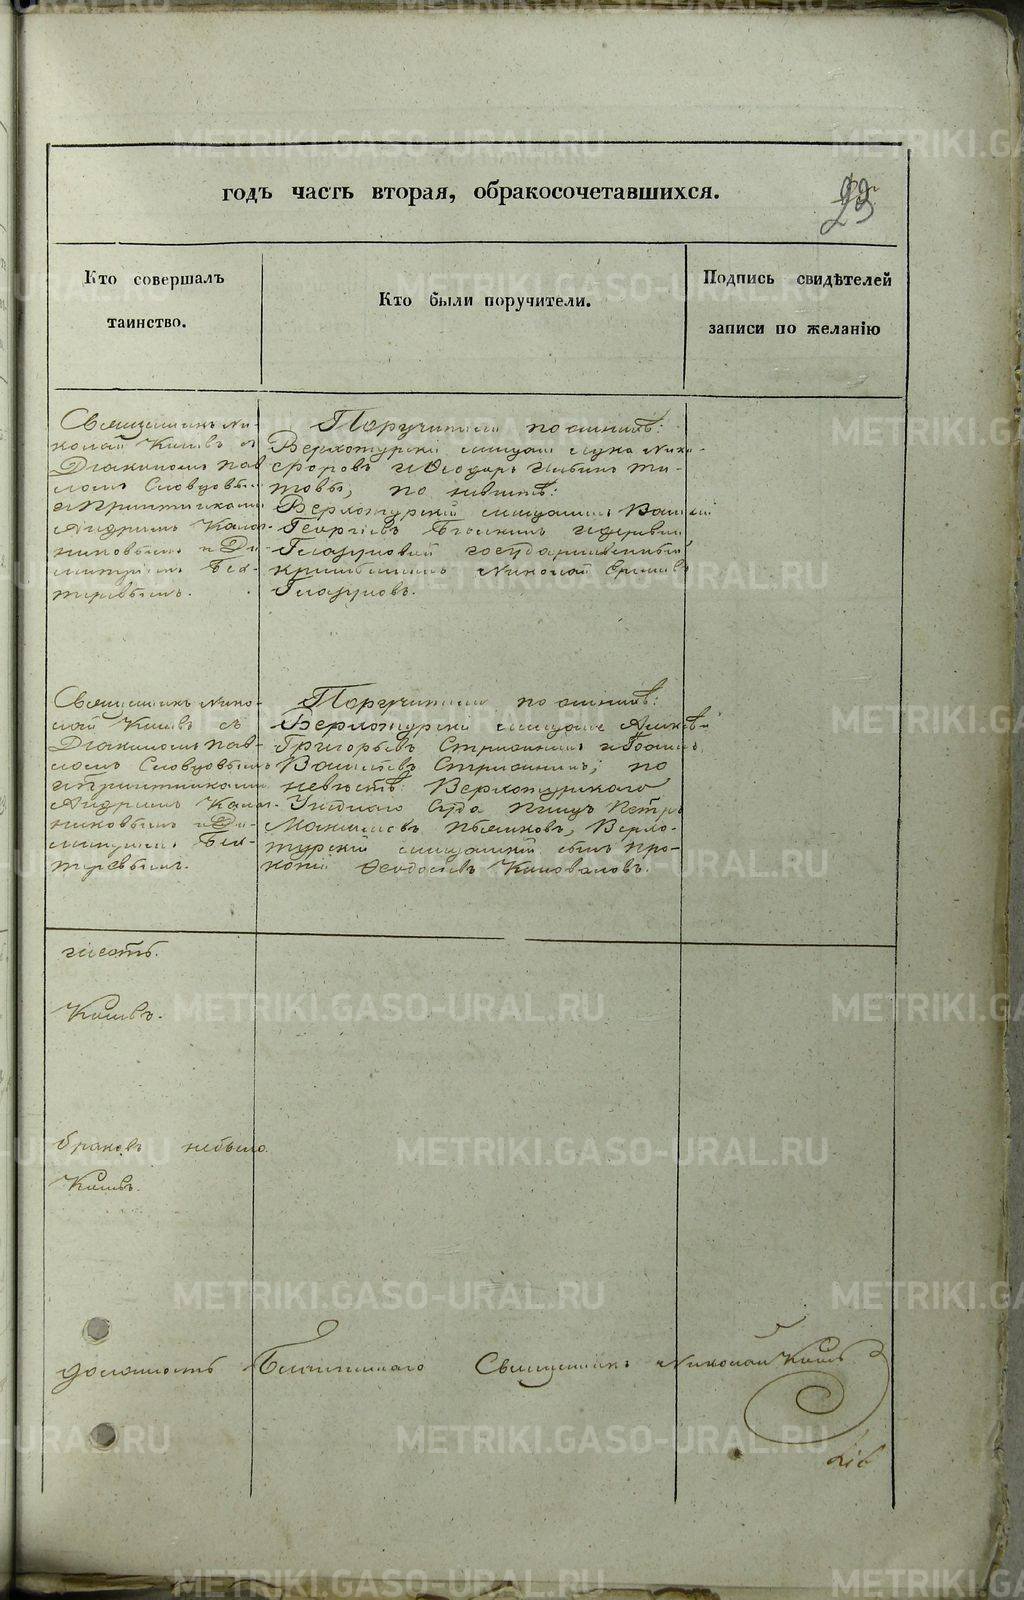 годъ часть вторая, обракосочетавшихся.
23
Кто совершалъ
таинство.
Кто были поручители.
Подпись свидѣтелей
записи по желанію
Священникъ Ни-
колай Кашевъ съ
Діакономъ Пав
ломъ Словцовымъ
и Причетниками
Андреемъ Кала-
никовымъ и Ди-
митріемъ Бех-
теревымъ.
Поручители по женихѣ:
Верхотурскіе мѣщане Лука Ники-
форовъ и Ѳеодоръ Ти-
товы, по невѣстѣ:
Верхотурскій мѣщанинъ Василій
Георгіевъ и деревни
Глазуновой государственный
крестьянинъ Николай
Глазуновъ.
Священникъ Нико-
лай Кашевъ съ
Діакономъ Пав-
ломъ Словцовымъ
и Причетниками
Андреемъ Кала-
никовымъ и Ди-
митріемъ Бех-
теревымъ.
Поручители по женихѣ:
Верхотурскіе мѣщане Алексѣй
Григорьевъ Стрижкинъ и
Василіевъ Стрижкинъ; по
невѣстѣ: Верхотурскаго
Уѣзднаго Суда Писецъ Петръ
Максимовъ Пьянковъ, Верхо-
турскій мѣщанскій сынъ Про-
копій Ѳеодосіевъ Коноваловъ.
шесть.
Кашевъ.
браковъ небыло.
Кашевъ.
должность Благочиннаго Священникъ Николай Кашевъ